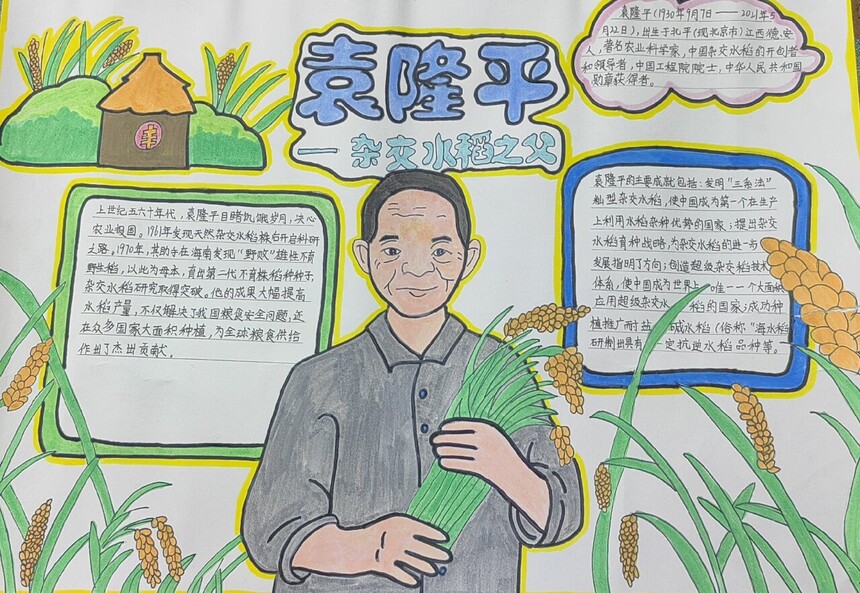 袁隆平
一杂交水稻之父
袁隆平(1930年9月7日——2021年5
月22日),出生于北平(现北京市)江西德安
人,著名农业科学家,中国杂交水稻的开创者
和领导者,中国工程院院士,中华人民共和国
勋章获得者。
丰
上世纪五六十年代,袁隆平目睹饥饿岁月,决心
农业报国。1961年发现天然杂交水稻株后开启科研
之路,1970年,其助手在海南发现"野败"雄性不育
野生稻,以此为母本,育出第一代不育株稻种种子,
杂交水稻研究取得突破。他的成果大幅提高
水稻产量,不仅解决了我国粮食安全问题,还
在众多国家大面积种植,为全球粮食供给
作出了杰出贡献。
袁隆平的主要成就包括:发明"三系法"
籼型杂交水稻,使中国成为第一个在生产
上利用水稻杂种优势的国家;提出杂交
水稻育种战略,为杂交水稻的进一步
发展指明了方向;创造超级杂交稻技术
体系,使中国成为世界上唯一一个大面积
应用超级杂交水稻的国家;成功种
植推广耐盐 碱水稻(俗称"海水稻
研制出具有一定抗逆水稻品种等。